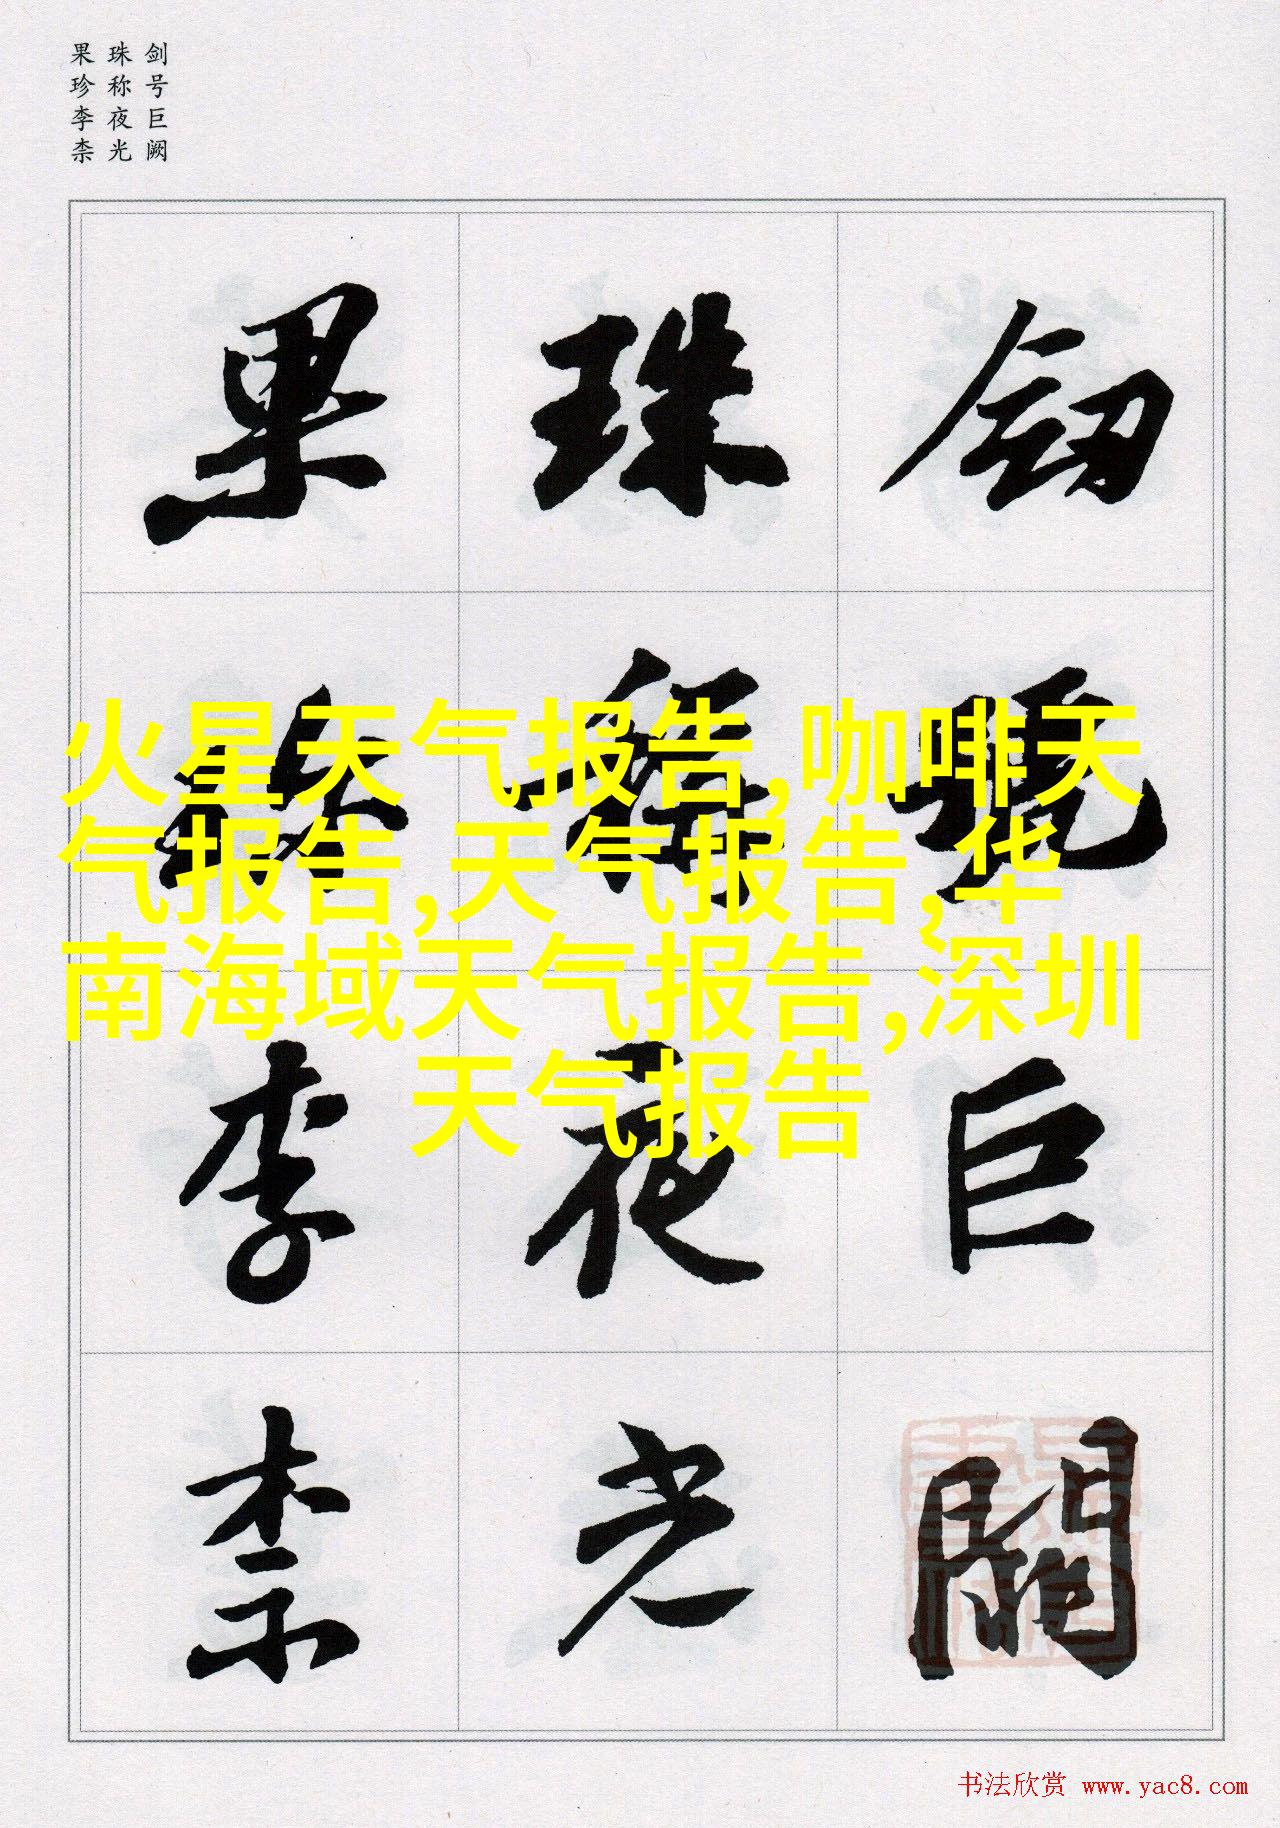 剑号巨阙
珠称夜光
果珍李柰
劎號巨闕
珠稱夜光
果珍李柰
火星天气报告,咖啡天
气报告,天气报告,华
南海域天气报告,深圳
天气报告
书法欣赏 www.yac8.com